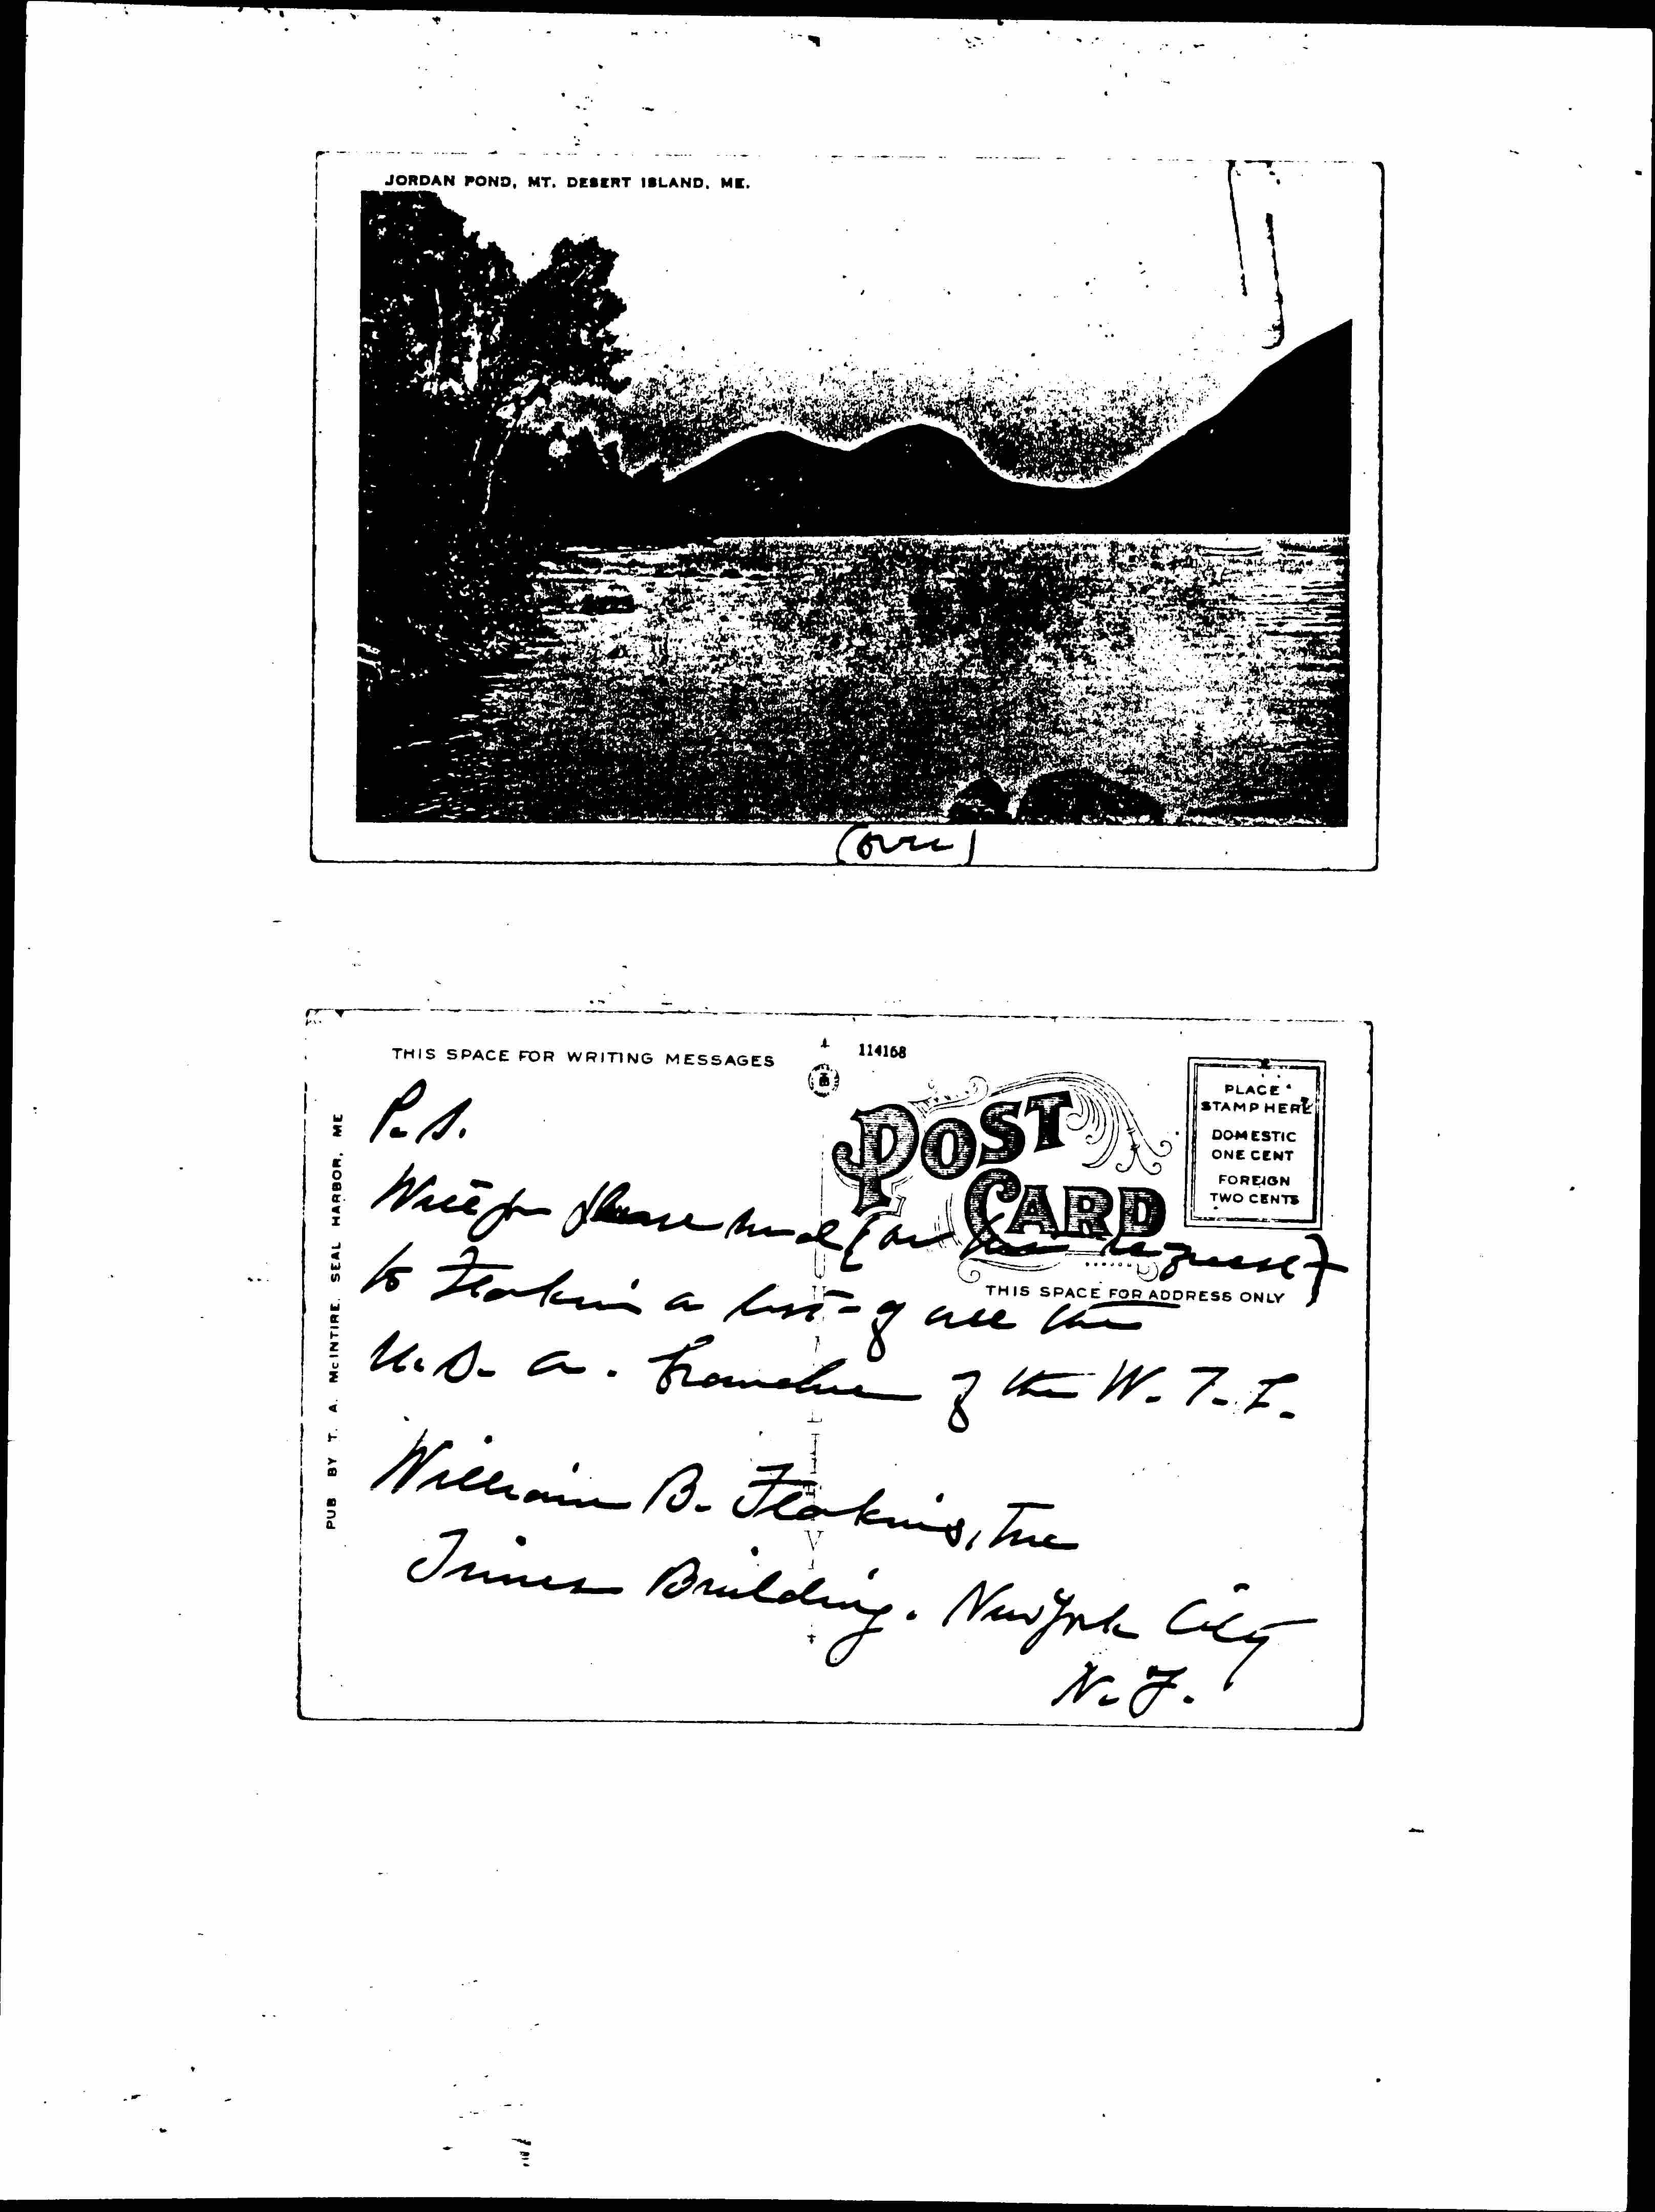 JORDAN POND, MT. DESERT ISLAND, ME.
(over)
THIS SPACE FOR WRITING MESSAGES
114168
POST
CARD
PLACE
STAMP HERE
DOMESTIC
ONE CENT
FOREIGN
TWO CENTS
THIS SPACE FOR ADDRESS ONLY
PUB BY T. A. McINTIRE. SEAL HARBOR, ME
P.S.
please send (on request)
to Feakins a list of all the
U.S.A. branches of the W.T.F.
William B. Feakins, Inc
Times Building. New York City
N.Y.